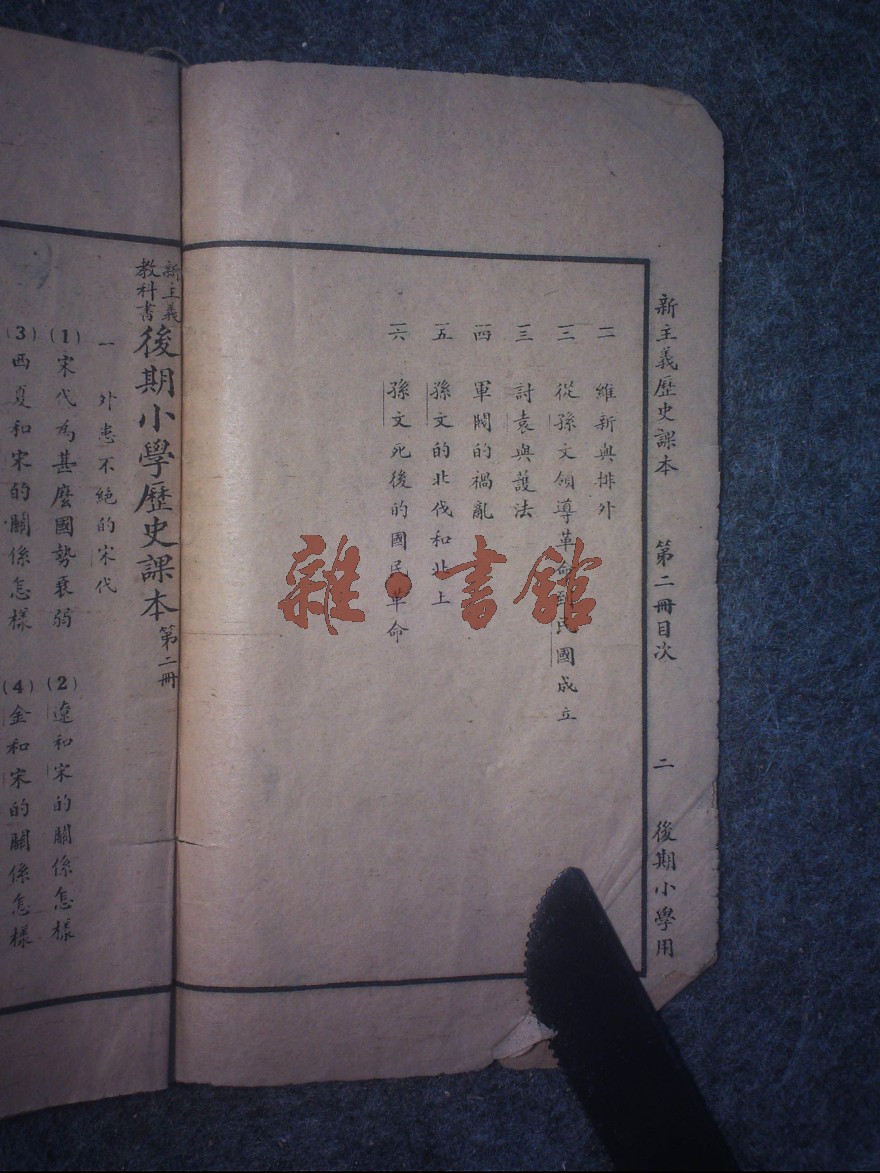 新主義歷史課本 第二冊目次 二 後期小學用
一一 維新與排外
一二 從孫文領導革命到民國成立
一三 討袁與護法
一四 軍閥的禍亂
一五 孫文的北伐和北上
一六 孫文死後的國民革命
雜·書館
新主義教科書 後期小學歷史課本 第二冊
一 外患不絕的宋代
(1)宋代為甚麼國勢衰弱 (2)遼和宋的關係怎樣
(3)西夏和宋的關係怎樣 (4)金和宋的關係怎樣